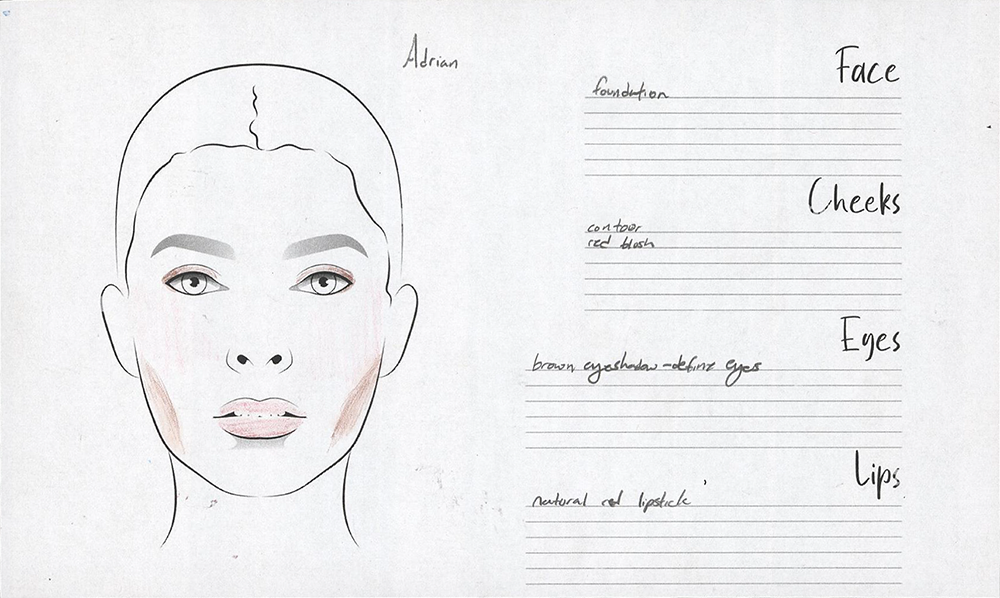 Adrian
Face
foundation
Cheeks
contour
red blush
Eyes
brown eyeshadow - define eyes
Lips
natural red lipstick